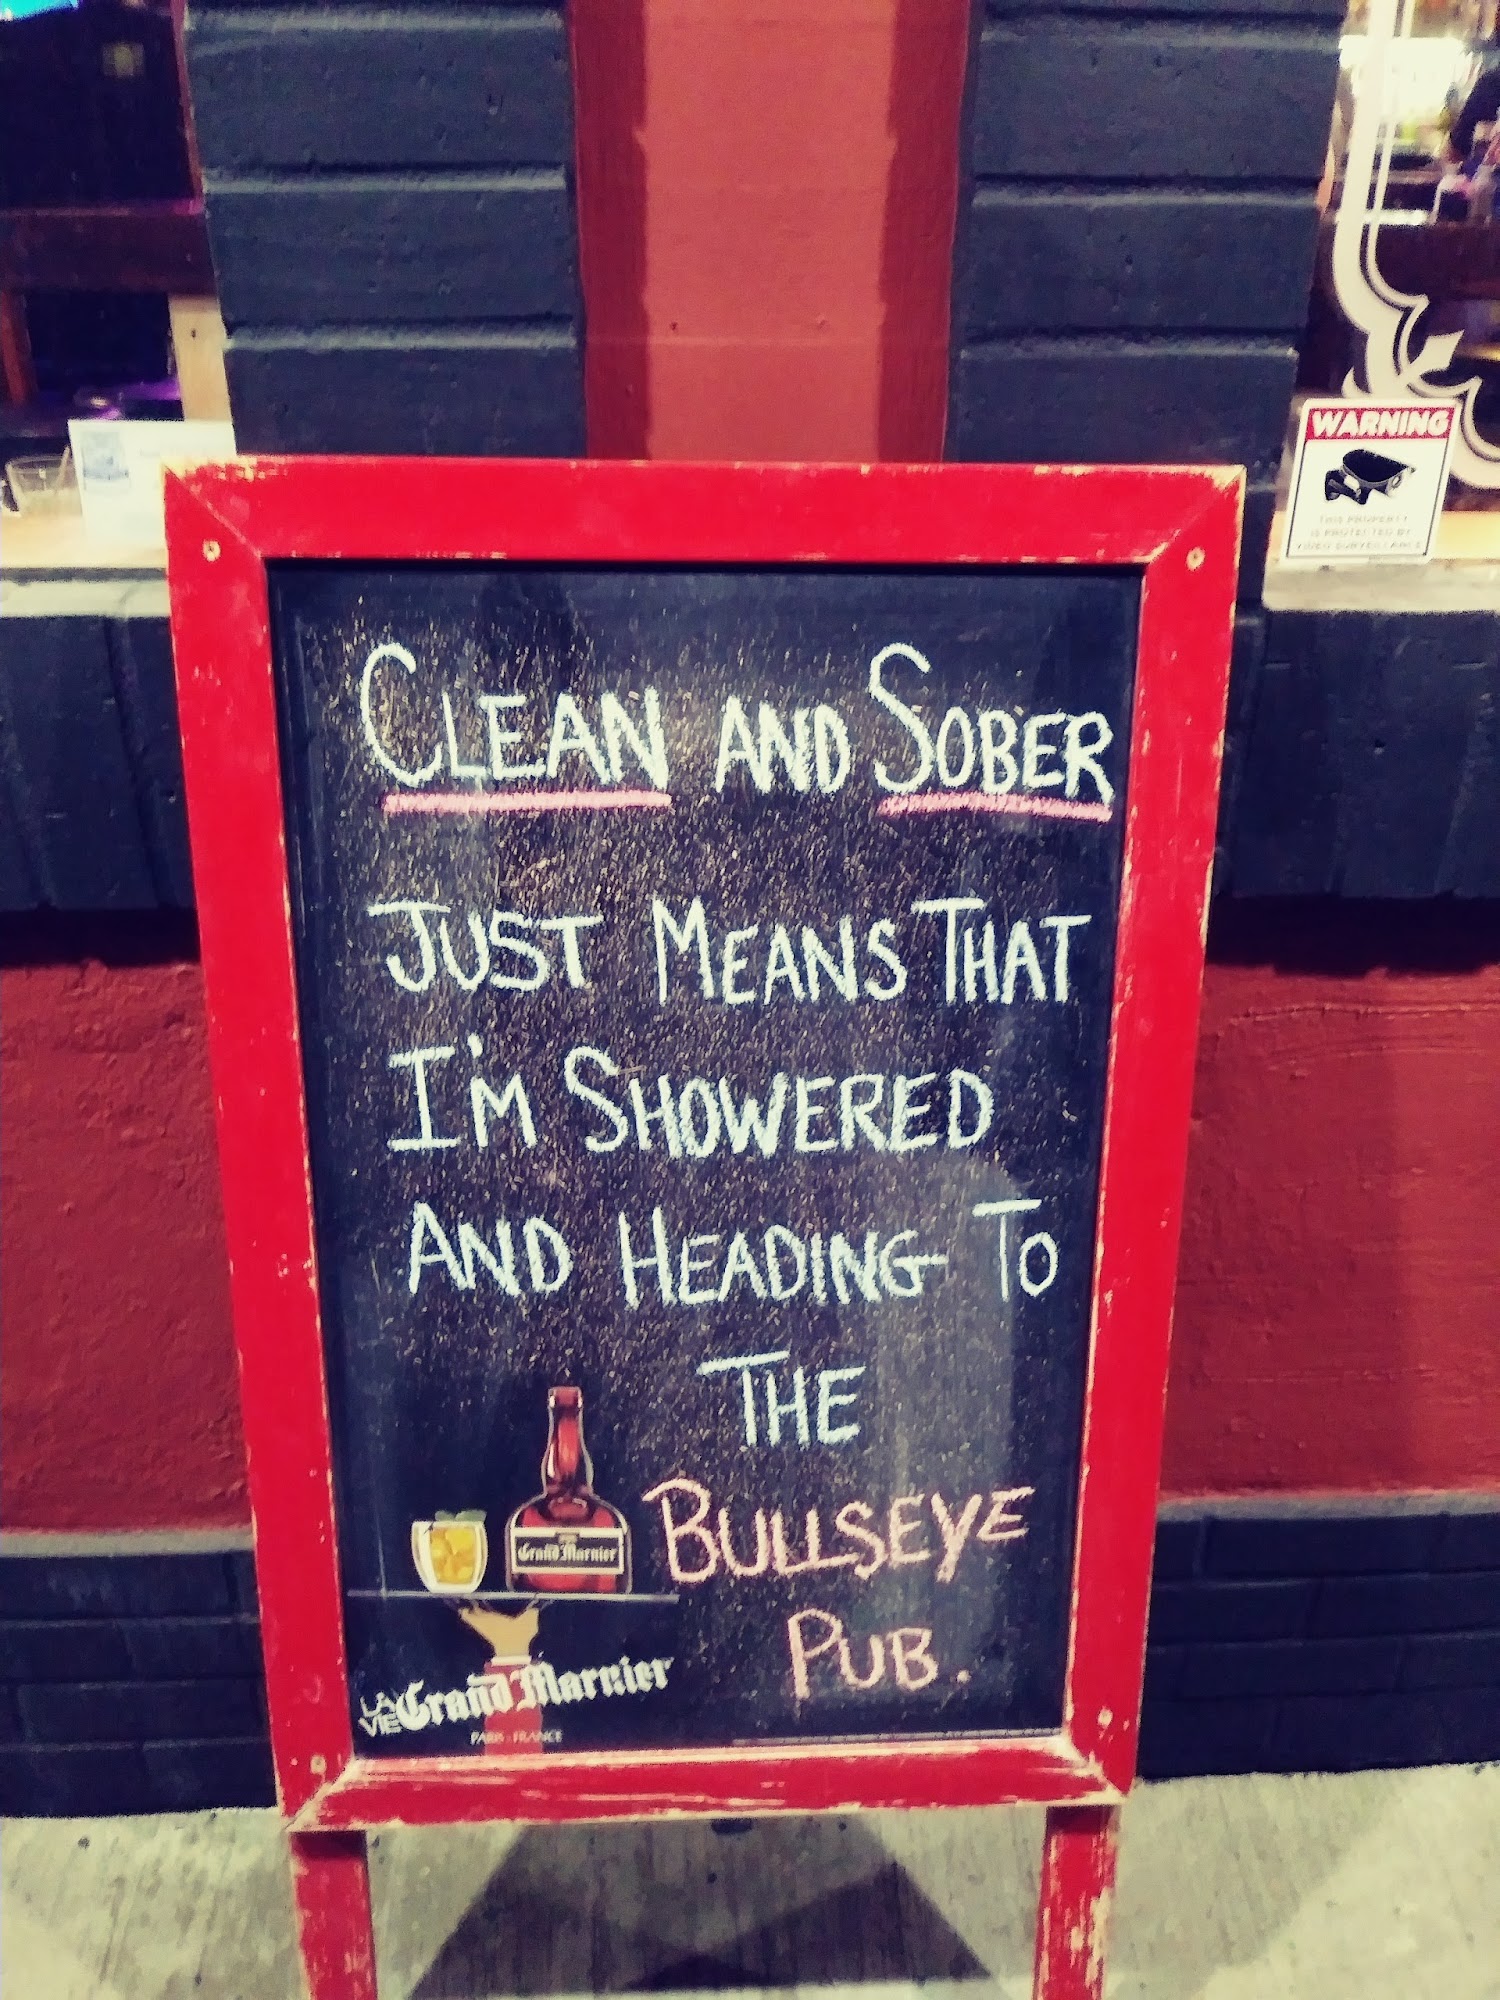 WARNING
THIS PROPERTY
IS PROTECTED BY
VIDEO SURVEILLANCE
CLEAN AND SOBER
JUST MEANS THAT
I'M SHOWERED
AND HEADING TO
THE
BULLSEYE
PUB.
Grand Marnier
LA VIE Grand Marnier
PARIS - FRANCE